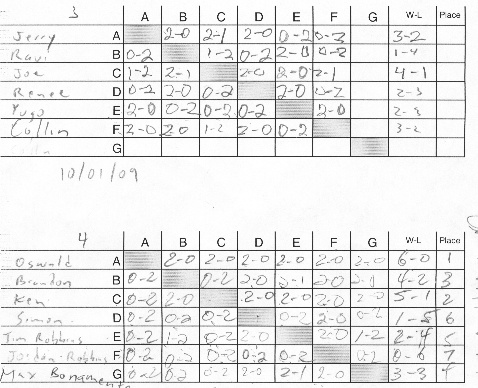 3 A B C D E F G W-L Place
Jerry A 2-0 2-1 2-0 0-2 0-2 3-2
Ravi B 0-2 1-2 0-2 2-0 0-2 1-4
Joe C 1-2 2-1 2-0 2-0 2-1 4-1
Renee D 0-2 2-0 0-2 2-0 0-2 2-3
Yugo E 2-0 0-2 0-2 0-2 2-0 2-3
Collin F 2-0 2-0 1-2 2-0 0-2 3-2
G
10/01/09
4 A B C D E F G W-L Place
Oswald A 2-0 2-0 2-0 2-0 2-0 2-0 6-0 1
Brandon B 0-2 0-2 2-0 2-1 2-0 4-2 3
Ken C 0-2 2-0 2-0 2-0 2-0 2-0 5-1 2
Simon D 0-2 0-2 0-2 0-2 2-0 0-2 1-5 6
Tim Robbins E 0-2 1-2 0-2 2-0 2-0 1-2 2-4 5
Jordan Robbins F 0-2 0-2 0-2 0-2 0-2 0-2 0-6 7
Max G 0-2 0-2 0-2 2-0 2-1 2-0 3-3 4